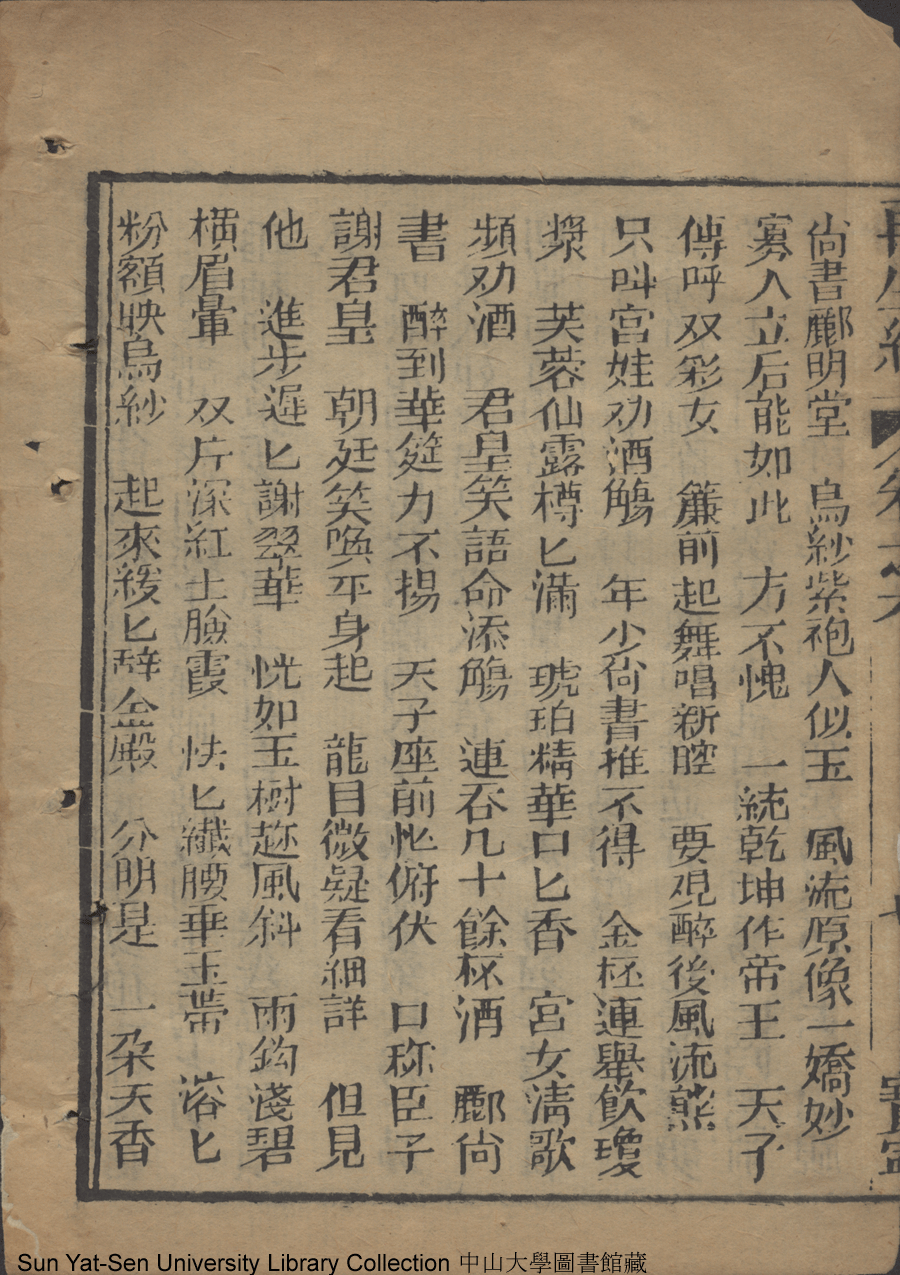 尙書酈明堂　烏紗紫袍人似玉　風流原像一嬌妙
寡人立后能如此　方不愧　一統乾坤作帝王　天子
傳呼双彩女　簾前起舞唱新腔　要观醉後風流態
只叫宮娃劝酒觴　年少尙書推不得　金杯連舉飲瓊
漿　芙蓉仙露樽匕滿　琥珀精華口匕香　宮女淸歌
頻劝酒　君皇笑語命添觴　連吞几十餘杯酒　酈尙
書　醉到華筵力不揚　天子座前忙俯伏　口称臣子
謝君皇　朝廷笑喚平身起　龍目微疑看細詳　但見
他　進步遲匕謝翠華　恍如玉樹趂風斜　兩鈎淺碧
橫眉暈　双片深紅上臉霞　怏匕纖腰垂玉帶　溶匕
粉額映烏紗　起來緩匕辞金殿　分明是　一朵天香
Sun Yat-Sen University Library Collection 中山大學圖書館藏